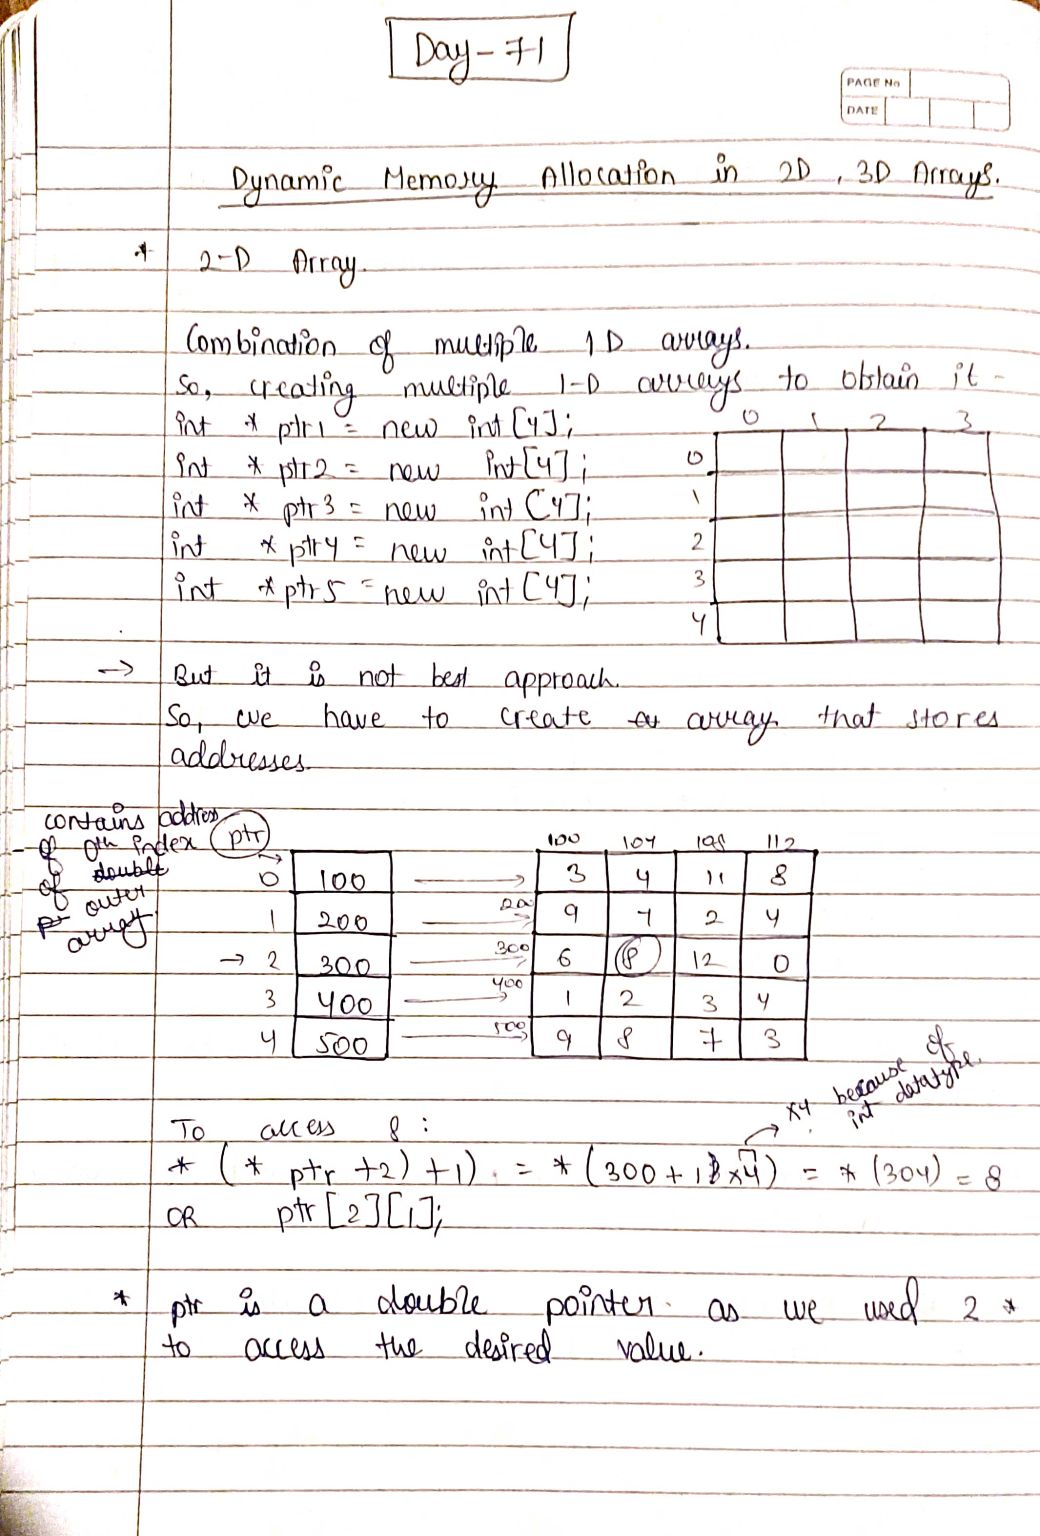 Day-71
PAGE No
DATE
Dynamic Memory Allocation in 2D, 3D Arrays.
* 2-D Array.
Combination of multiple 1D arrays.
So, creating multiple 1-D arrays to obtain it -
int * ptr1 = new int [4];
int * ptr2 = new int [4];
int * ptr3 = new int [4];
int * ptr4 = new int [4];
int * ptr5 = new int [4];
0 1 2 3
0
1
2
3
4
→ But it is not best approach.
So, we have to create array that stores
addresses.
contains address
of 0th index
of double
outer
array
ptr
100 104 108 112
0 100 → 3 4 11 8
1 200 → 200 9 7 2 4
→ 2 300 → 300 6 8 12 0
3 400 → 400 1 2 3 4
4 500 → 500 9 8 7 3
x4 because of
int datatype.
To access 8 :
* (* ptr +2) +1) = * (300 + 1 x4) = * (304) = 8
OR ptr [2][1];
* ptr is a double pointer as we used 2 *
to access the desired value.